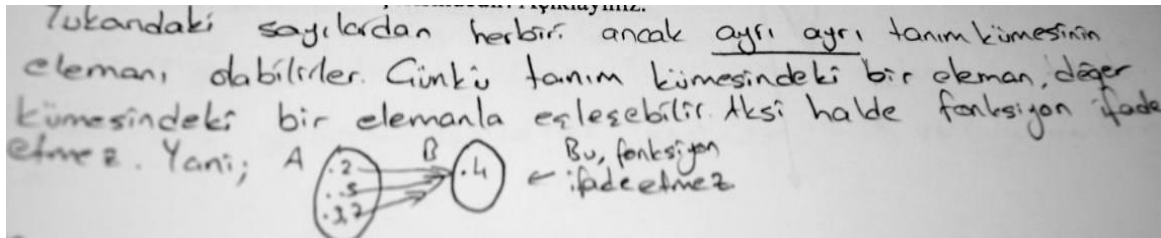 Açıklayınız.
Yukarıdaki sayılardan herbiri ancak ayrı ayrı tanım kümesinin
elemanı olabilirler. Çünkü tanım kümesindeki bir eleman, değer
kümesindeki bir elemanla eşleşebilir. Aksi halde fonksiyon ifade
etmez. Yani; A B Bu, fonksiyon
.2 .4 ← ifade etmez.
.5
.3,7